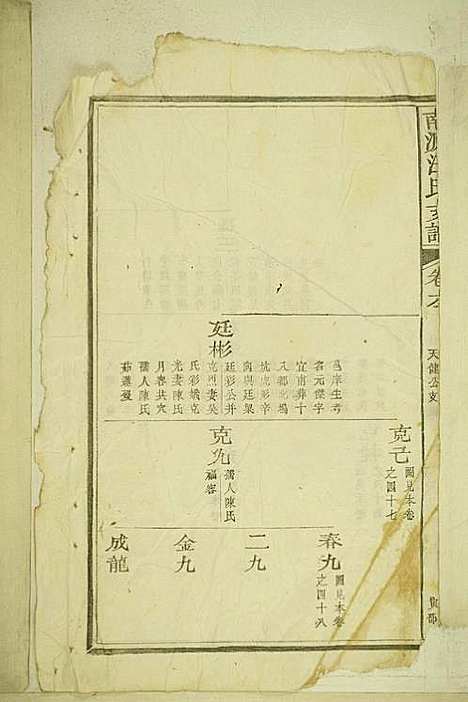 南源汪氏支譜
卷之六
天健公支
廷彬
邑庠生考
名元傑字
宜甫葬十
八都北塢
坑虎形辛
向與廷杲
廷彩公并
克烈妻吳
氏彩娥克
光妻陳氏
月春共穴
孺人陳氏
克己
圖見本卷
之四十七
克九
孺人陳氏
福容
春九
圖見本卷
之四十八
二九
金九
成龍